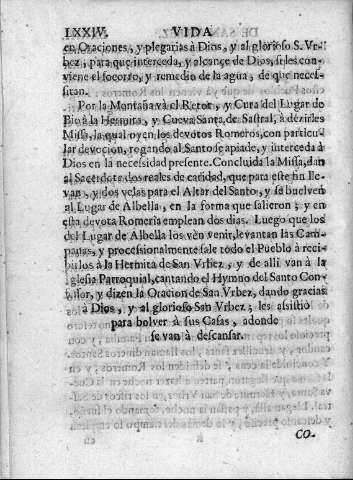 LXXIV. VIDA
en Oraciones, y plegarias à Dios, y al glorioso S. Vr-
bez, para que interceda, y alcançe de Dios, si les con-
viene el socorro, y remedio de la agua, de que necef-
sitan.
Por la Montaña và el Retor, y Cura del Lugar de
Bio à la Hermita, y Cueva Santa, de Sastral, à dezirles
Missa, la qual oyen los devotos Romeros, con particu-
lar devocion, rogando al Santo se apiade, y interceda à
Dios en la necessidad presente. Concluida la Missa, dan
al Sacerdote dos reales de caridad, que para este fin lle-
van, y dos velas para el Altar del Santo, y se buelven
al Lugar de Albella, en la forma que salieron; y en
esta devota Romeria emplean dos dias. Luego que los
del Lugar de Albella los vèn venir, levantan las Cam-
panas, y processionalmente sale todo el Pueblo à reci-
birlos à la Hermita de San Vrbez, y de alli van à la
Iglesia Parroquial, cantando el Hymno del Santo Con-
fessor, y dizen la Oracion de San Vrbez, dando gracias
à Dios, y al glorioso San Vrbez; les assistio
para bolver à sus Casas, adonde
se van à descansar.
CO-